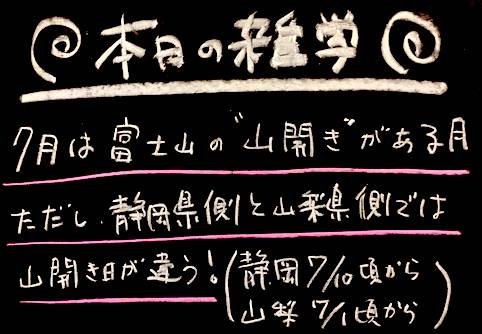 本日の雑学
7月は富士山の"山開き"がある月
ただし、静岡県側と山梨県側では
山開き日が違う!(静岡7/10頃から
山梨7/1頃から)